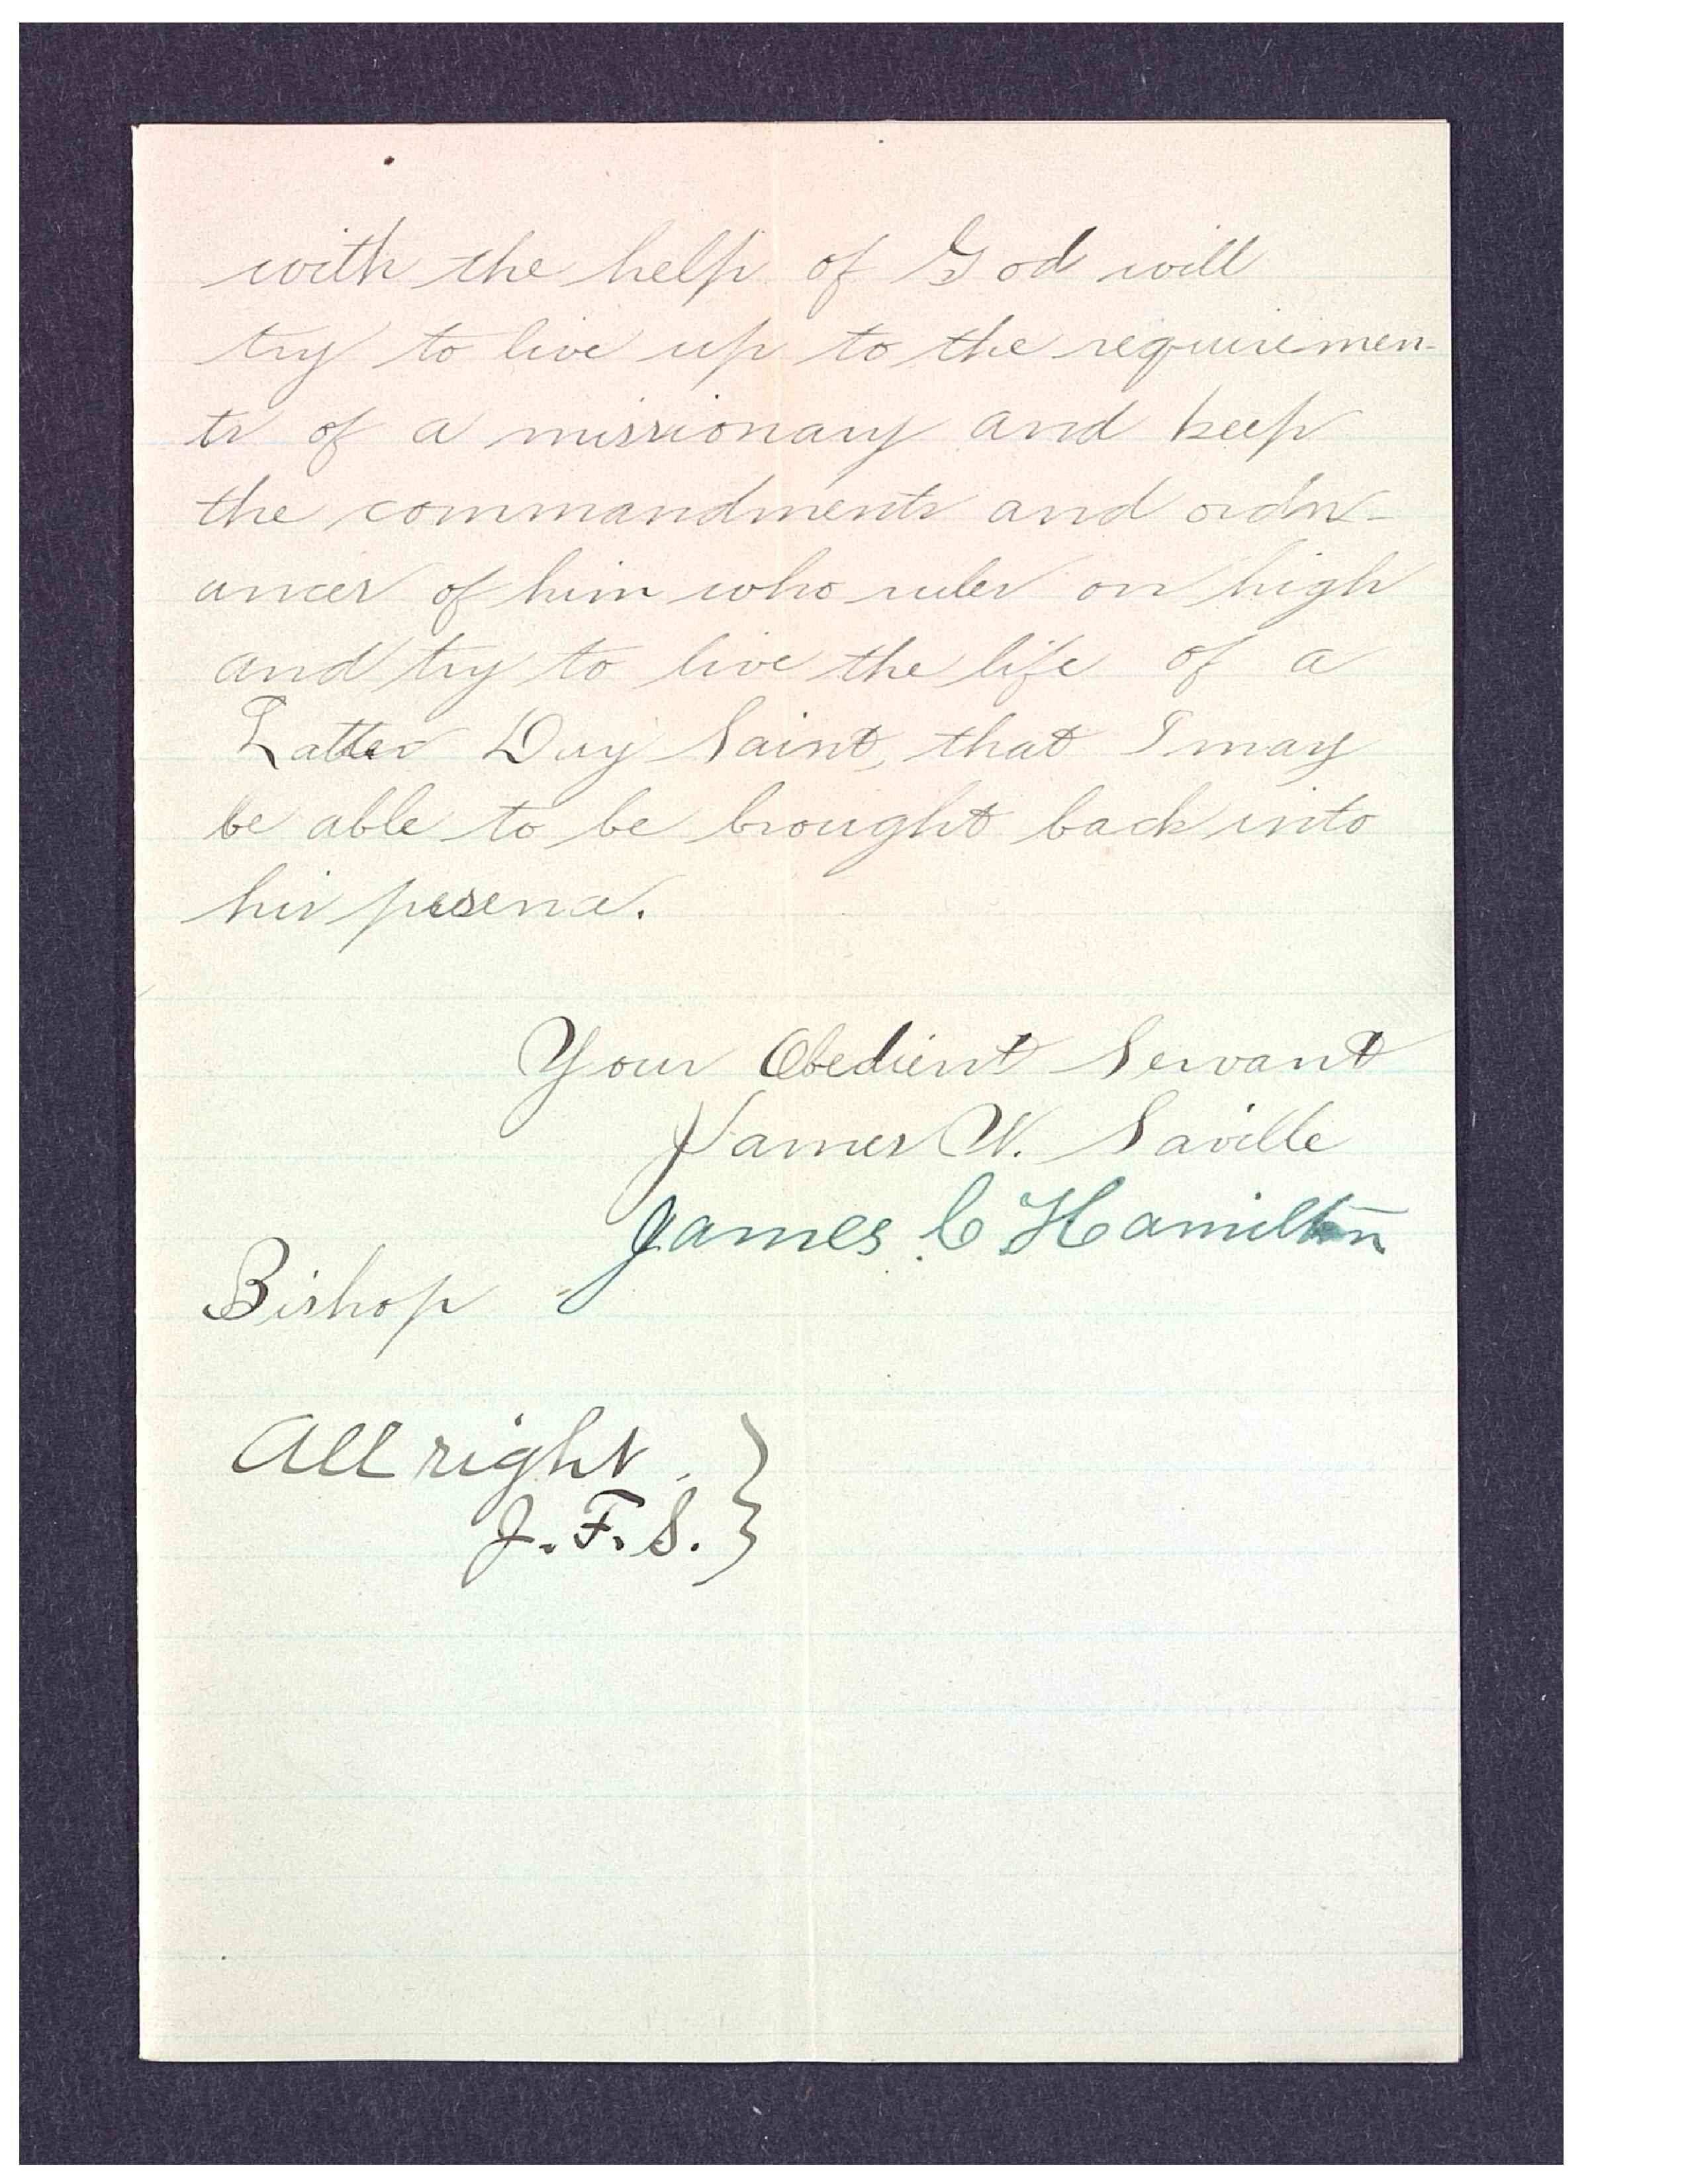 with the help of God will
try to live up to the requiremen-
ts of a missionary and keep
the commandments and ordn-
ances of him who rules on high
and try to live the life of a
Latter Day Saint, that I may
be able to be brought back into
his presence.
Your Obedient Servant
James W. Saville
James C Hamilton
Bishop
All right.
J.F.S.